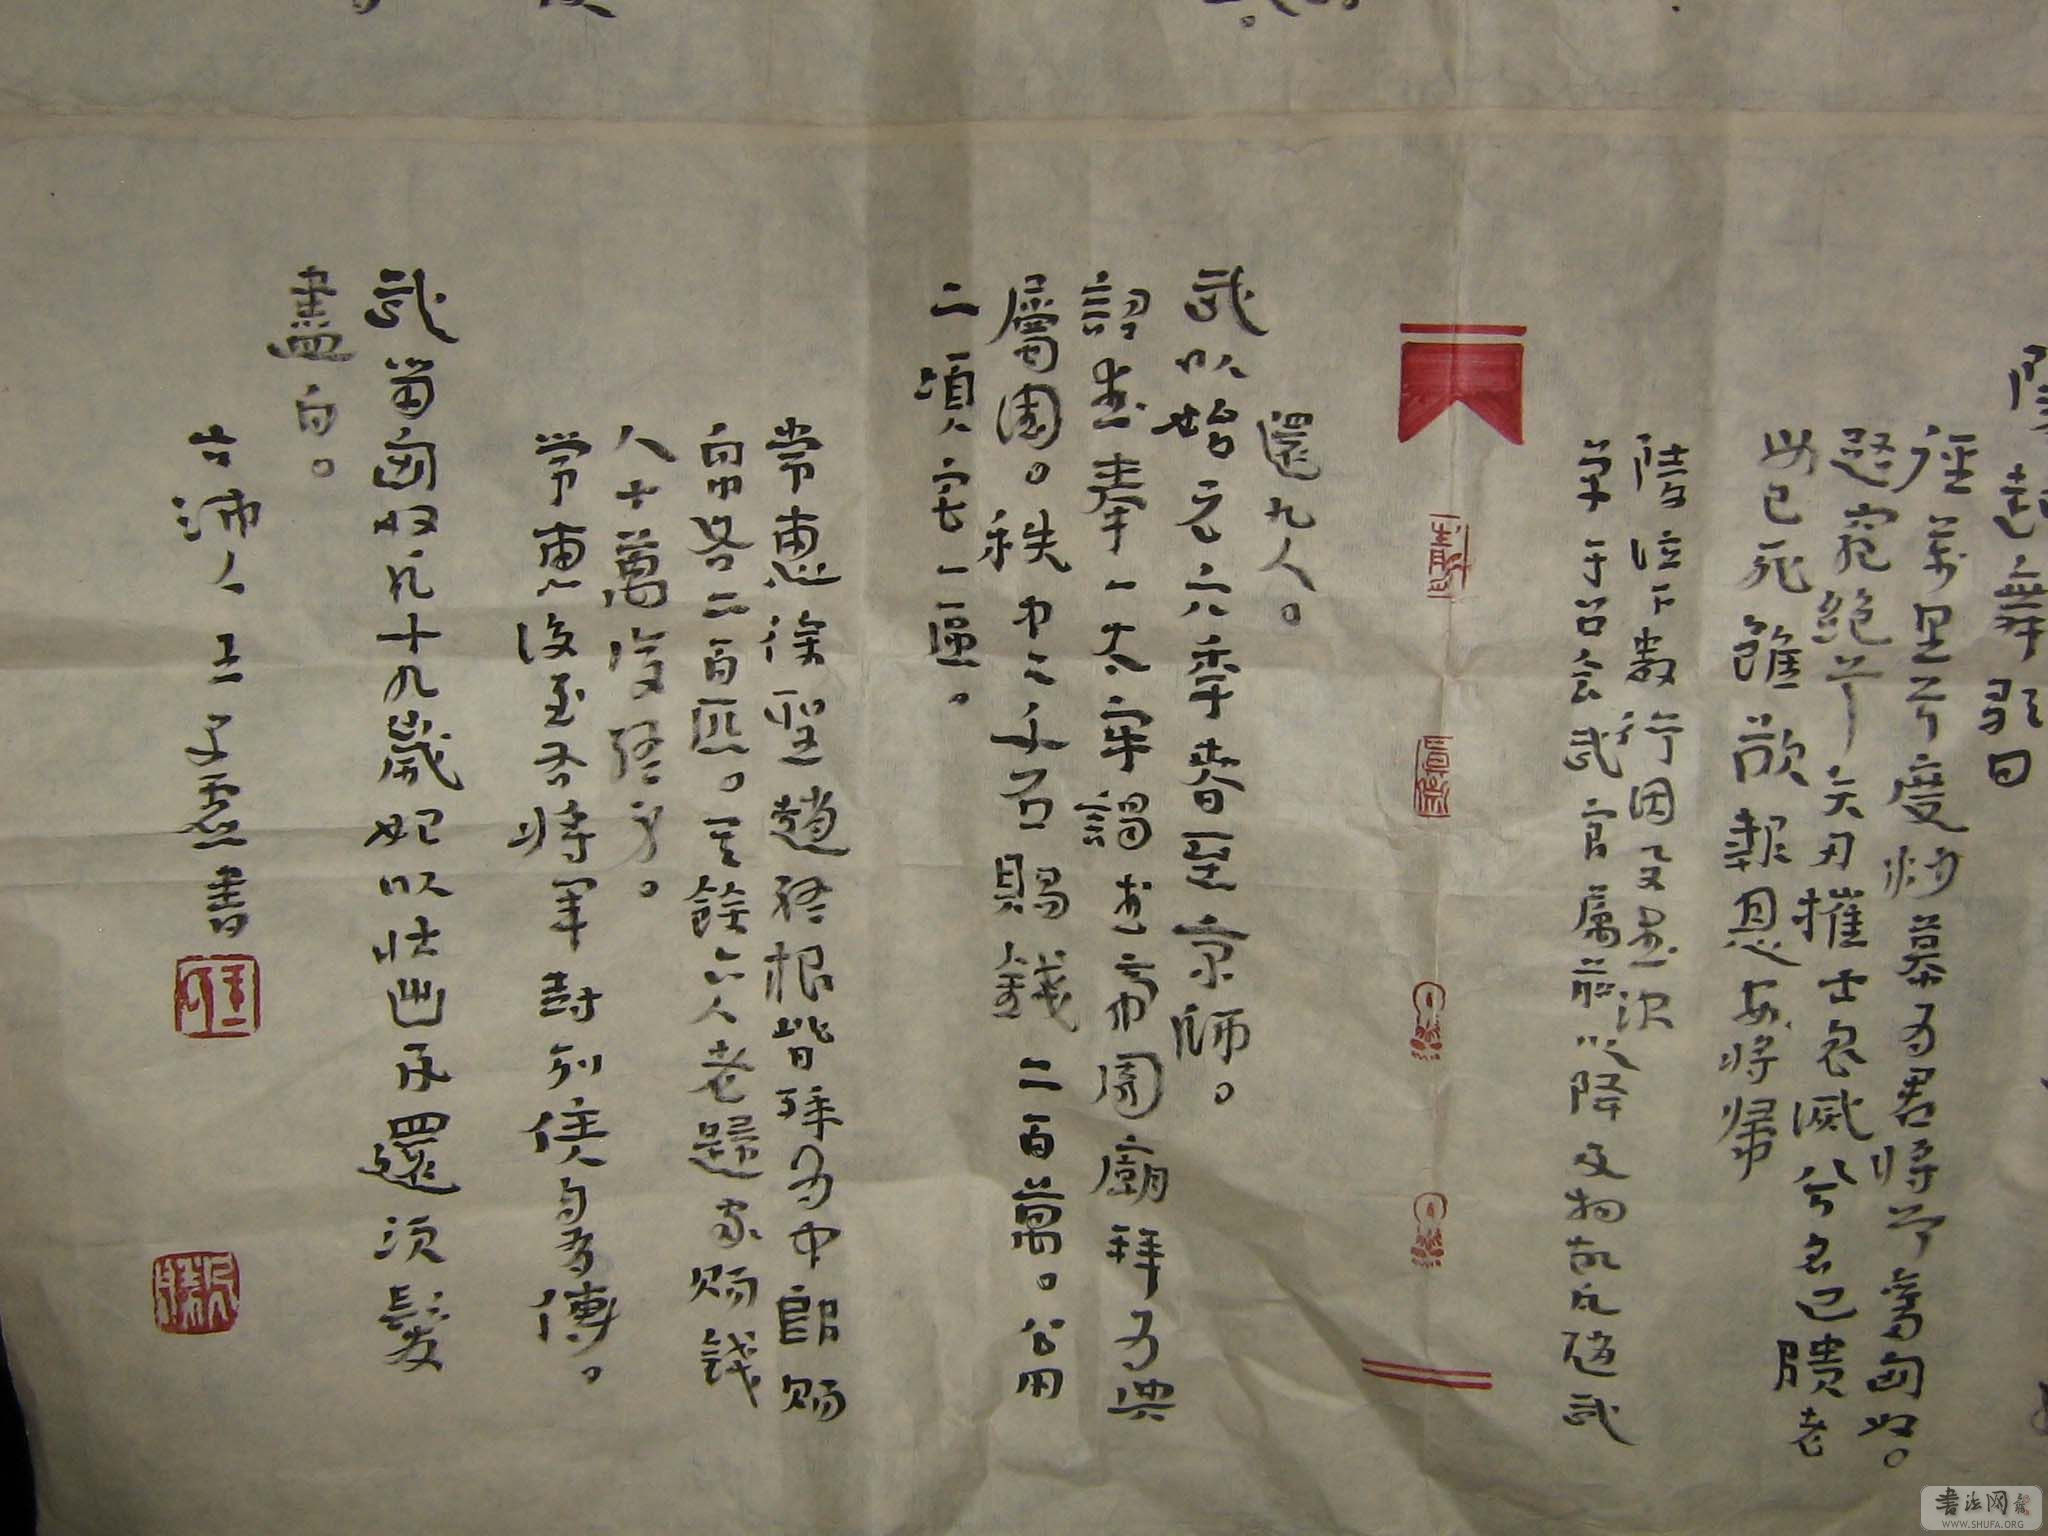 陵起舞歌曰
徑萬里兮度沙幕為君將兮奮匈奴。
路窮絕兮矢刃摧士衆滅兮名已隤老
母已死雖欲報恩安將歸
陵泣下數行因與武決
單于召會武官屬前以降及物故凡隨武
還九人。
武以始元六年春至京師。
詔武奉一太牢謁武帝園廟拜為典
屬國。秩中二千石賜錢二百萬。公田
二頃宅一區。
常惠徐聖趙終根皆拜為中郎賜
帛各二百匹。其餘六人老歸家賜錢
人十萬復終身。
常惠後至右將軍封列侯自有傳。
武留匈奴凡十九歲始以壯出及還須髮
盡白。
古沛人王子靈書
書法网
WWW.SHUFA.ORG